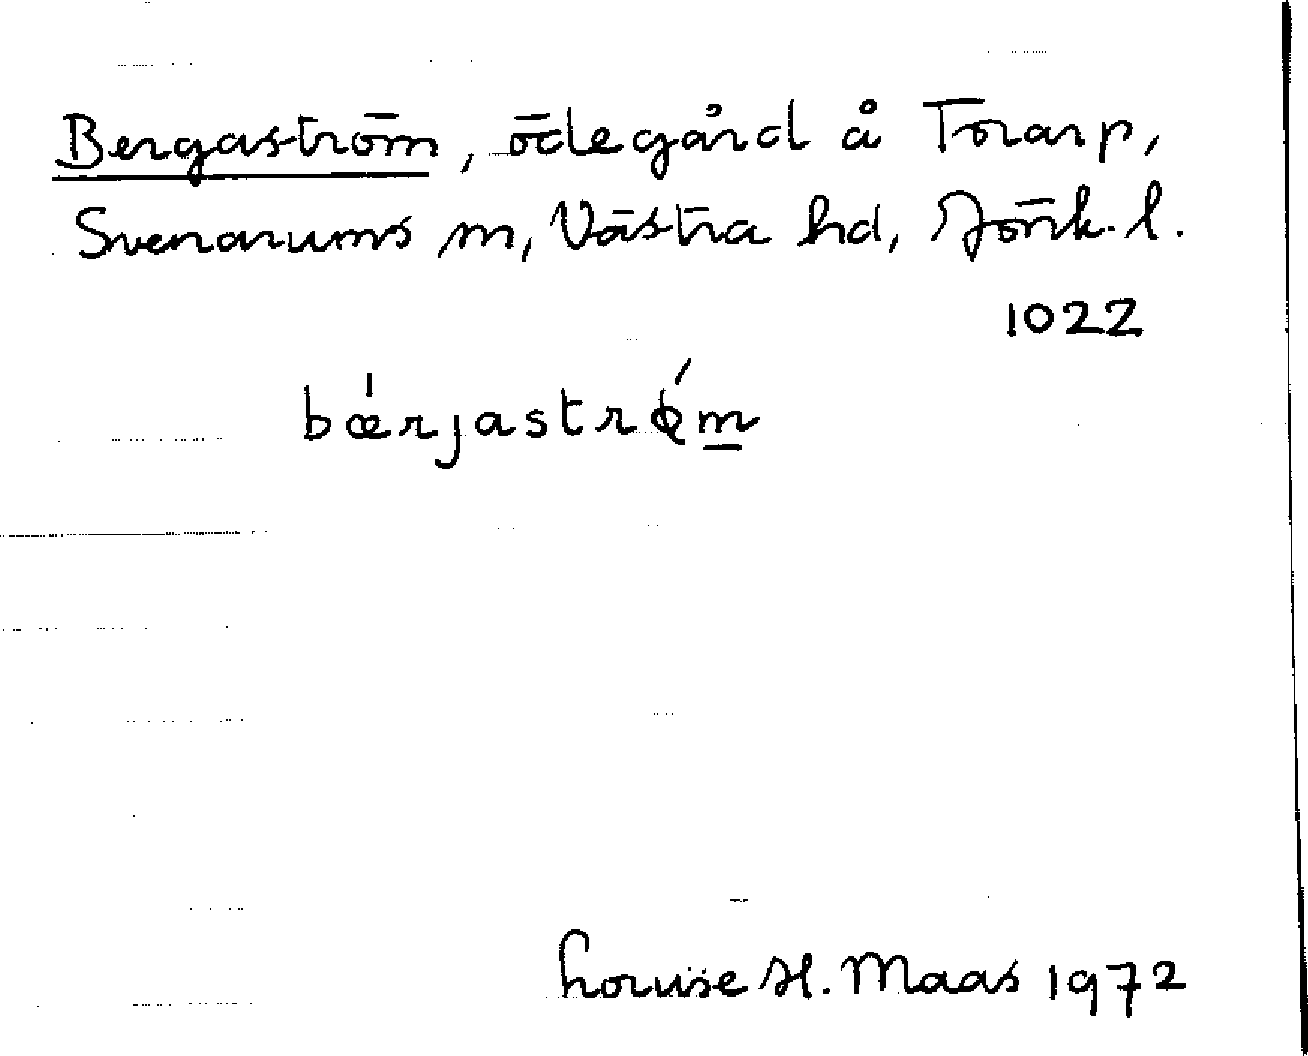 Bergaström, ödegård å Torarp,
Svenarums sn, Västra hd, Jönk. l.
1022
bæ̍rjastrǿm̲
Louise H. Maas 1972